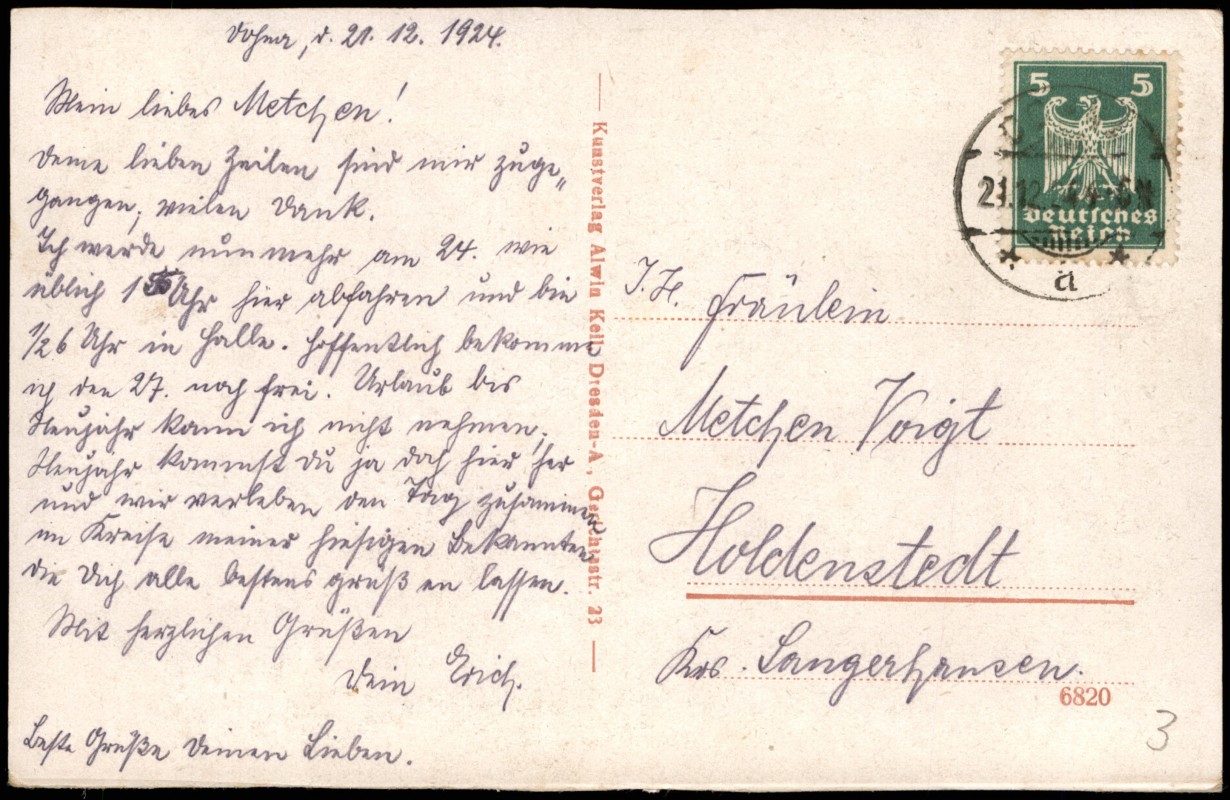 Dohna, d. 21. 12. 1924.
Mein liebes Metchen!
Deine lieben Zeilen sind mir zuge„
gangen, vielen Dank.
Ich werde nunmehr am 24. wie
üblich 1 Uhr hier abfahren und bin
1/26 Uhr in Halle. Hoffentlich bekomme
ich den 27. noch frei. Urlaub bis
Neujahr kann ich nicht nehmen,
Neujahr kommst Du ja doch hier her
und wir verleben den Tag zusammen
im Kreise meiner hiesigen Bekannten
die Dich alle bestens grüßen lassen.
Mit herzlichen Grüßen
Dein Erich.
Beste Grüße Deinen Lieben.
Kunstverlag Alwin Keil, Dresden-A., Gerichtsstr. 23
5 5
Deutsches
Reich
21.12.24 4-6N
* a *
I. H. Fräulein
Metchen Voigt
Holdenstedt
Krs. Sangerhausen.
6820
3